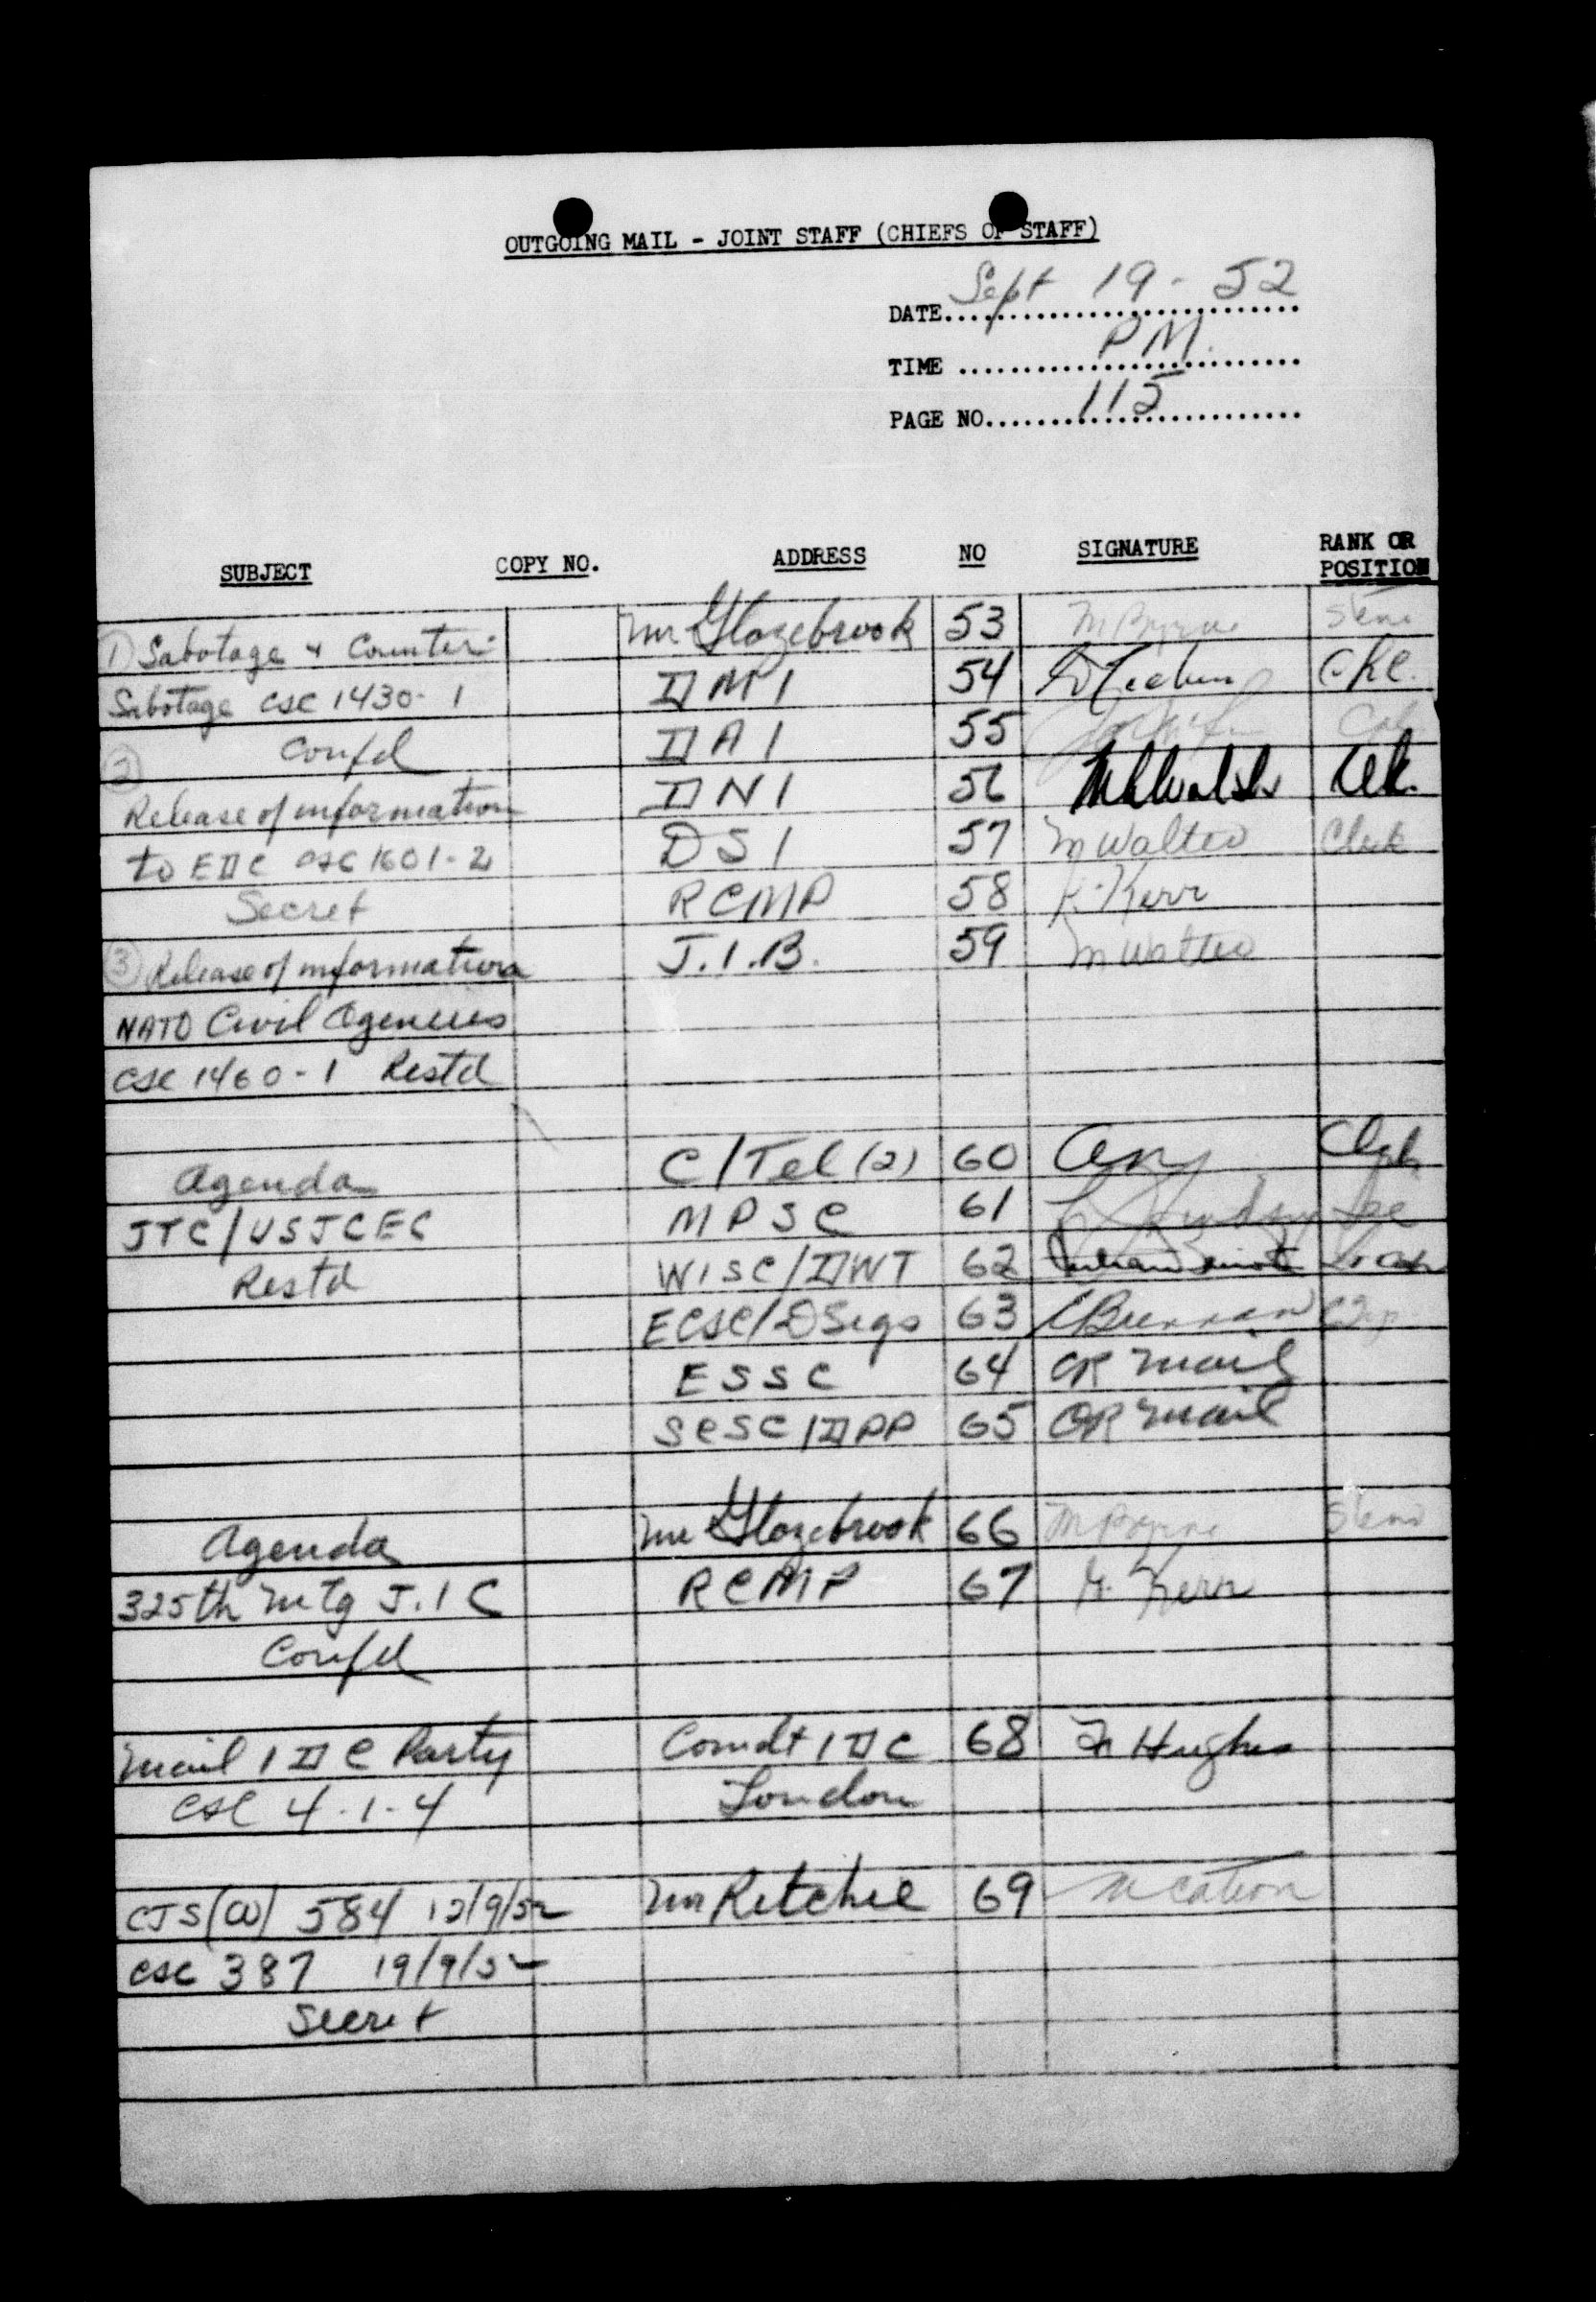 OUTGOING MAIL - JOINT STAFF (CHIEFS OF STAFF)
DATE Sept 19 - 52
TIME PM.
PAGE NO. 115
SUBJECT COPY NO. ADDRESS NO SIGNATURE RANK OR POSITION
① Sabotage & Counter- Mr Glazebrook 53 M Byrne Steno
Sabotage CSC 1430-1 DMI 54
Confd DAI 55
② Release of information DNI 56 Clk.
to EDC CSC 1601-2 DSI 57 M Walter Clerk
Secret RCMP 58 Kerr
③ Release of information J.I.B. 59 M Walter
NATO Civil Agencies
CSC 1460-1 Restd
Agenda C/Tel (2) 60 Clerk
JTC/USJCEC MPSC 61
Restd WISC/DWT 62
ECSC/DSigs 63
ESSC 64 OR Mail
SCSC/DPP 65 OR Mail
Agenda Mr Glazebrook 66 M Byrne Steno
325th Mtg J.I C RCMP 67 Kerr
Confd
Mail IDC Party Comdt IDC 68 Hughes
CSC 4-1-4 London
CJS(W) 584 12/9/52 Mr Ritchie 69
CSC 387 19/9/52
Secret